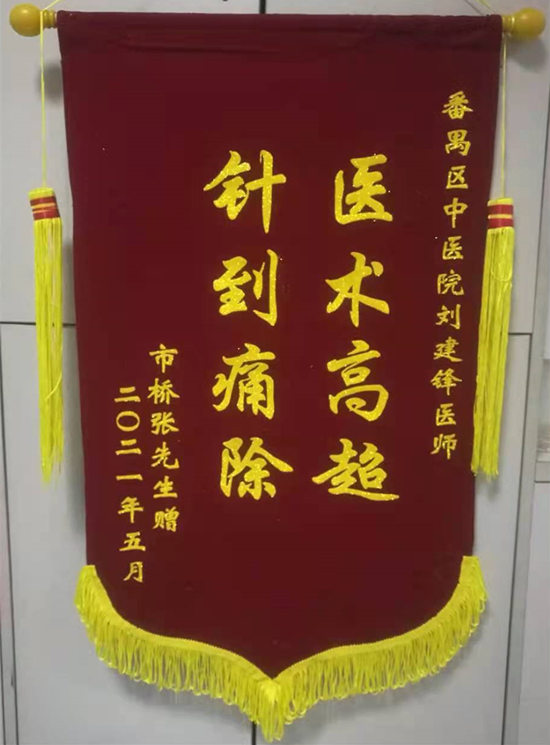 番禺区中医院刘建锋医师
医术高超
针到痛除
市桥张先生赠
二〇二一年五月